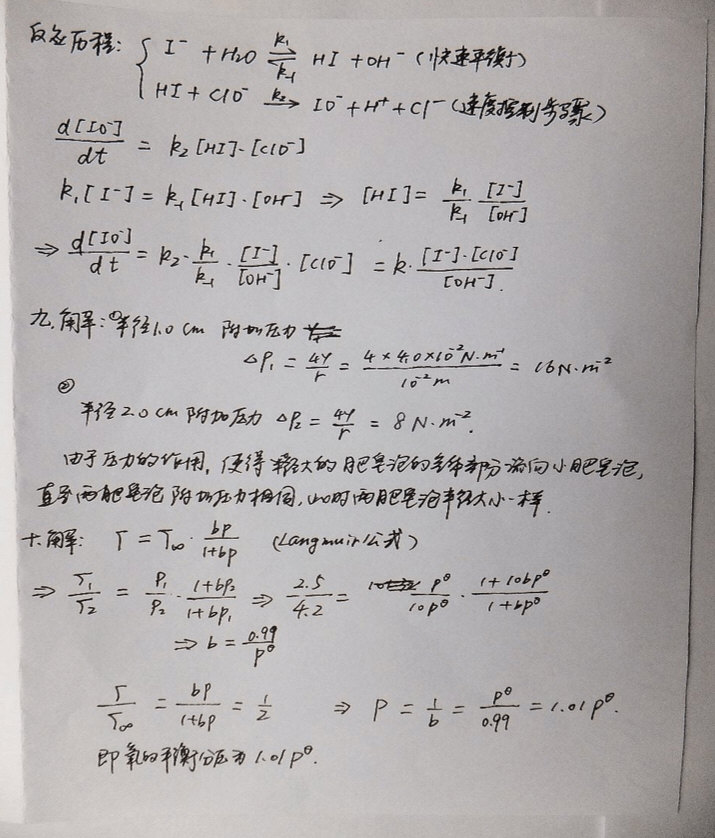 反应历程: { I⁻ + H₂O ⇌ HI + OH⁻ (快速平衡) k₁ k₋₁
HI + ClO⁻ →k₂ IO⁻ + H⁺ + Cl⁻ (速度控制步骤)
d[IO⁻]/dt = k₂[HI]·[ClO⁻]
k₁[I⁻] = k₋₁[HI]·[OH⁻] ⇒ [HI] = k₁/k₋₁ [I⁻]/[OH⁻]
⇒ d[IO⁻]/dt = k₂·k₁/k₋₁·[I⁻]/[OH⁻]·[ClO⁻] = k·[I⁻]·[ClO⁻]/[OH⁻].
九.解: ①半径1.0 cm 附加压力
ΔP₁ = 4γ/r = 4×4.0×10⁻²N·m⁻¹/10⁻²m = 16N·m⁻²
② 半径2.0cm附加压力 ΔP₂ = 4γ/r = 8N·m⁻².
由于压力的作用, 使得 大的肥皂泡的 部分流向小肥皂泡,
直至两肥皂泡附加压力相同, 此时两肥皂泡半径大小一样.
十.解: Γ = Γ∞·bp/1+bp (Langmuir公式)
⇒ Γ₁/Γ₂ = P₁/P₂·1+bp₂/1+bp₁ ⇒ 2.5/4.2 = p^θ/10p^θ·1+10bp^θ/1+bp^θ
⇒ b = 0.99/p^θ
Γ/Γ∞ = bp/1+bp = 1/2 ⇒ P = 1/b = p^θ/0.99 = 1.01p^θ.
即氧的平衡分压为1.01p^θ.